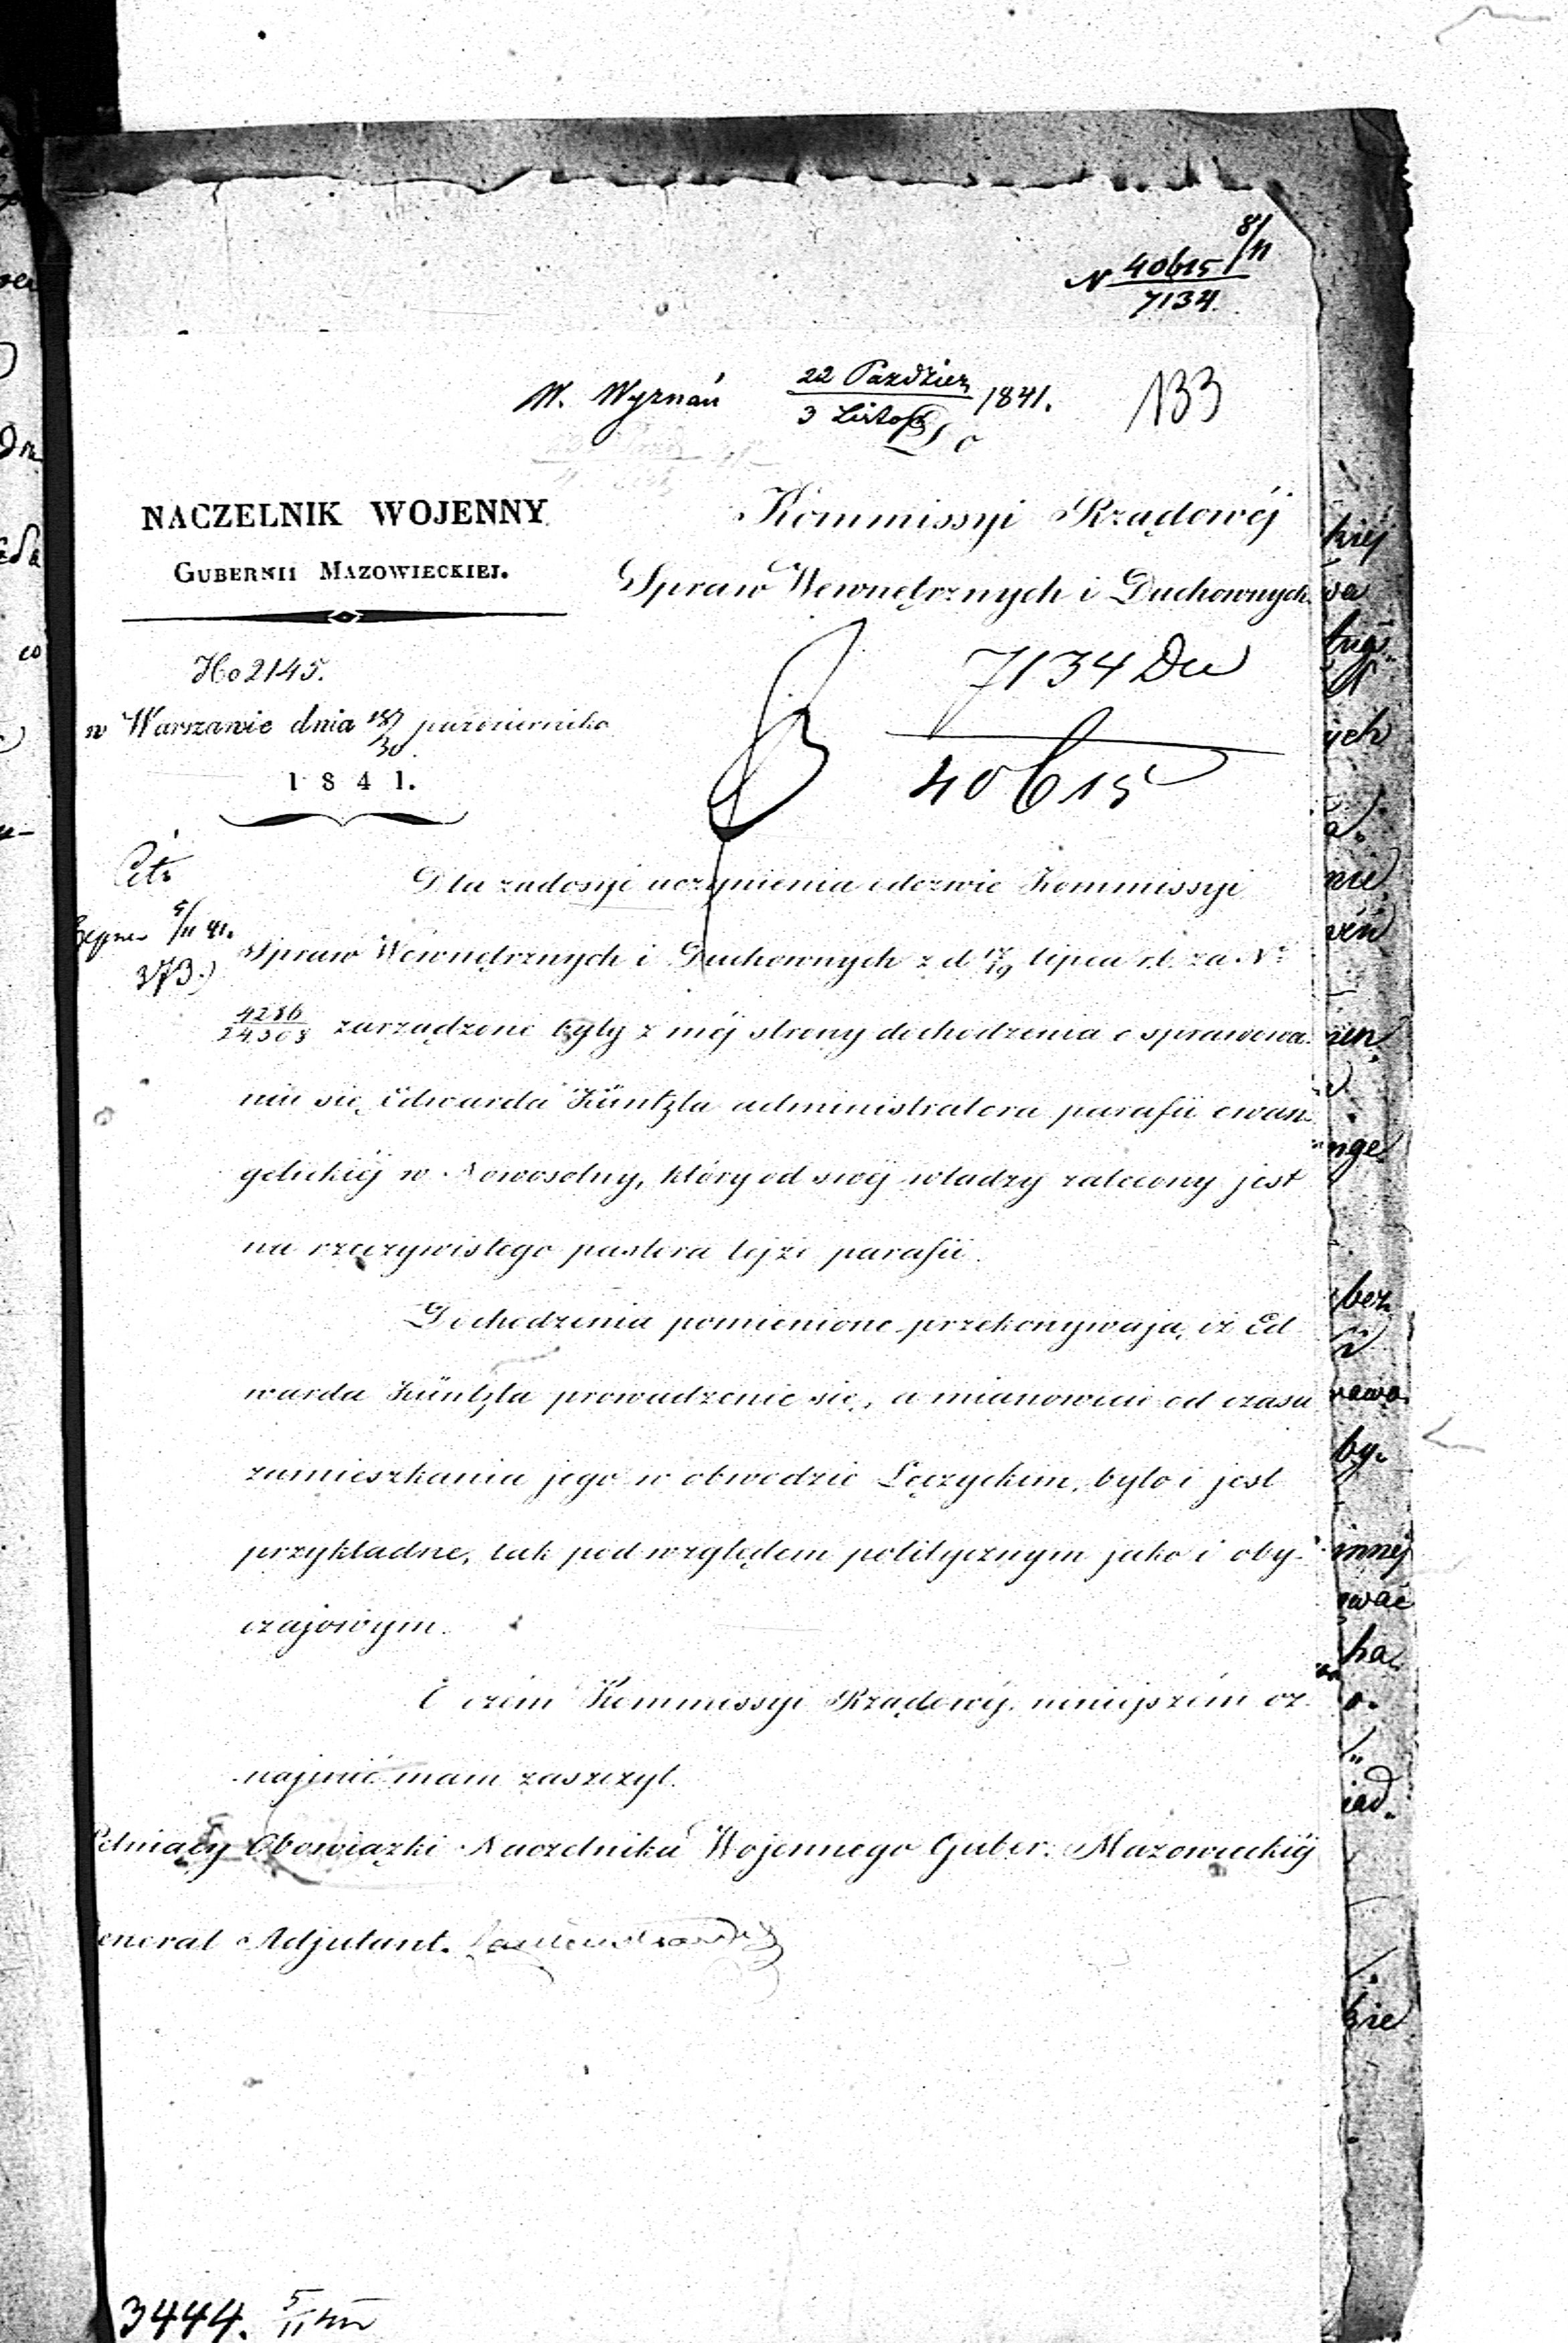 N 40615/7134 8/11
W. Wyznań 22 Paździer/3 Listop 1841. 133
Do
NACZELNIK WOJENNY
GUBERNII MAZOWIECKIEJ.
Kommissyi Rządowéj
Spraw Wewnętrznych i Duchownych
No 2145.
w Warszawie dnia 18/30 października
1841.
7134 Du
40615
Dla zadosyć uczynienia odezwie Kommissyi
5/11 41.
Spraw Wewnętrznych i Duchownych z d 17/19 lipca r.b. za Nr
373.)
4286/24303 zarządzone były z méj strony dochodzenia o sprawowa-
niu się Edwarda Küntzla administratora parafii ewan-
gelickiéj w Nowosolny, który od swéj władzy zalecony jest
na rzeczywistego pastora tejże parafii.
Dochodzenia pomienione przekonywają, iż Ed-
warda Küntzla prowadzenie się, a mianowicie od czasu
zamieszkania jego w obwodzie Łęczyckim, było i jest
przykładne, tak pod względem politycznym jako i oby-
czajowym.
O czém Kommissyi Rządowéj niniejszém oz-
najmić mam zaszczyt.
Pełniący Obowiązki Naczelnika Wojennego Guber: Mazowieckiéj
General Adjutant.
3444. 5/11